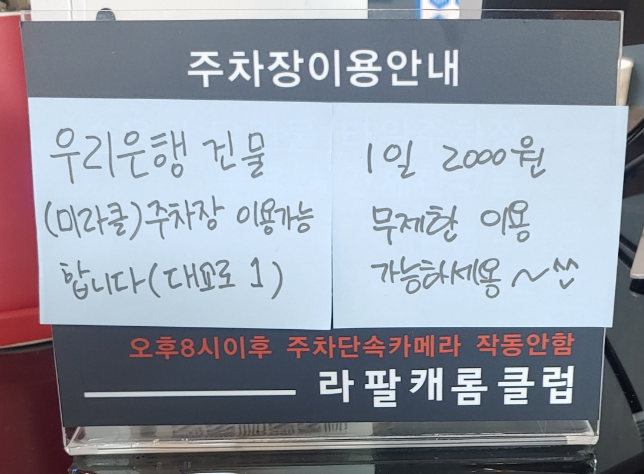 주차장이용안내
우리은행 건물
(미라클)주차장 이용가능
합니다(대교로 1)
1일 2000원
무제한 이용
가능하세용~^^
오후8시이후 주차단속카메라 작동안함
라팔캐롬클럽